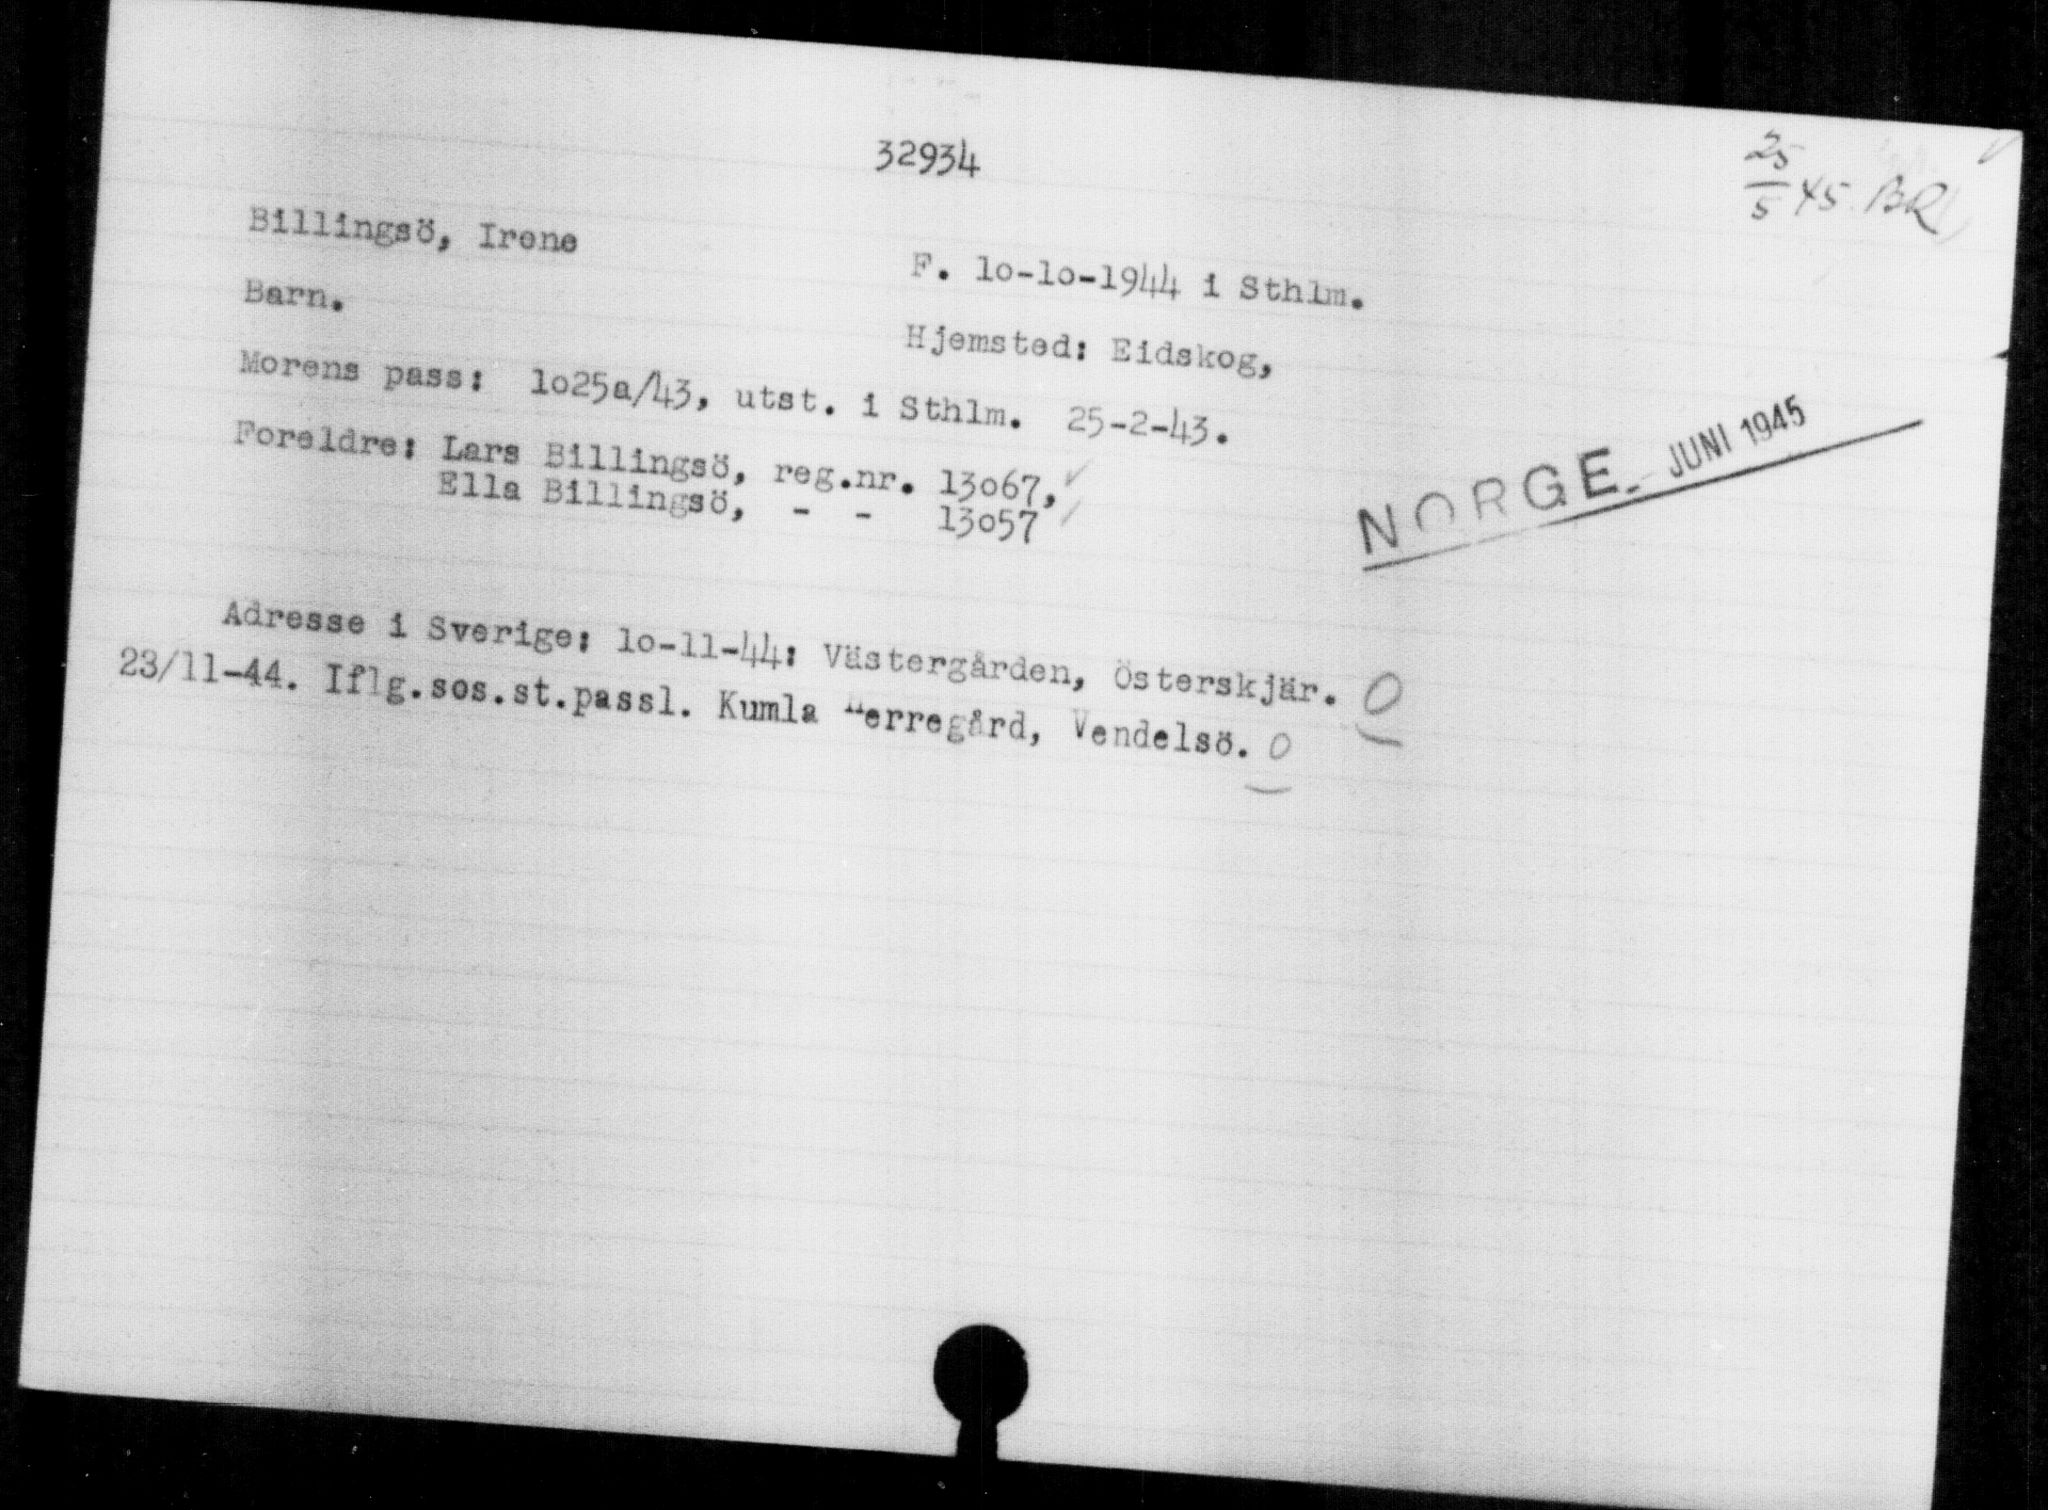 32934
25/5 45. BR
Billingsö, Irene
F. 10-10-1944 i Sthlm.
Barn.
Hjemsted: Eidskog,
Morens pass: 1025a/43, utst. i Sthlm. 25-2-43.
Foreldre: Lars Billingsö, reg.nr. 13067, ✓
Ella Billingsö, - - 13057 ✓
NORGE - JUNI 1945
Adresse i Sverige: 10-11-44: Västergården, Österskjär. 0
23/11-44. Iflg.sos.st.passl. Kumla Herregård, Vendelsö. 0